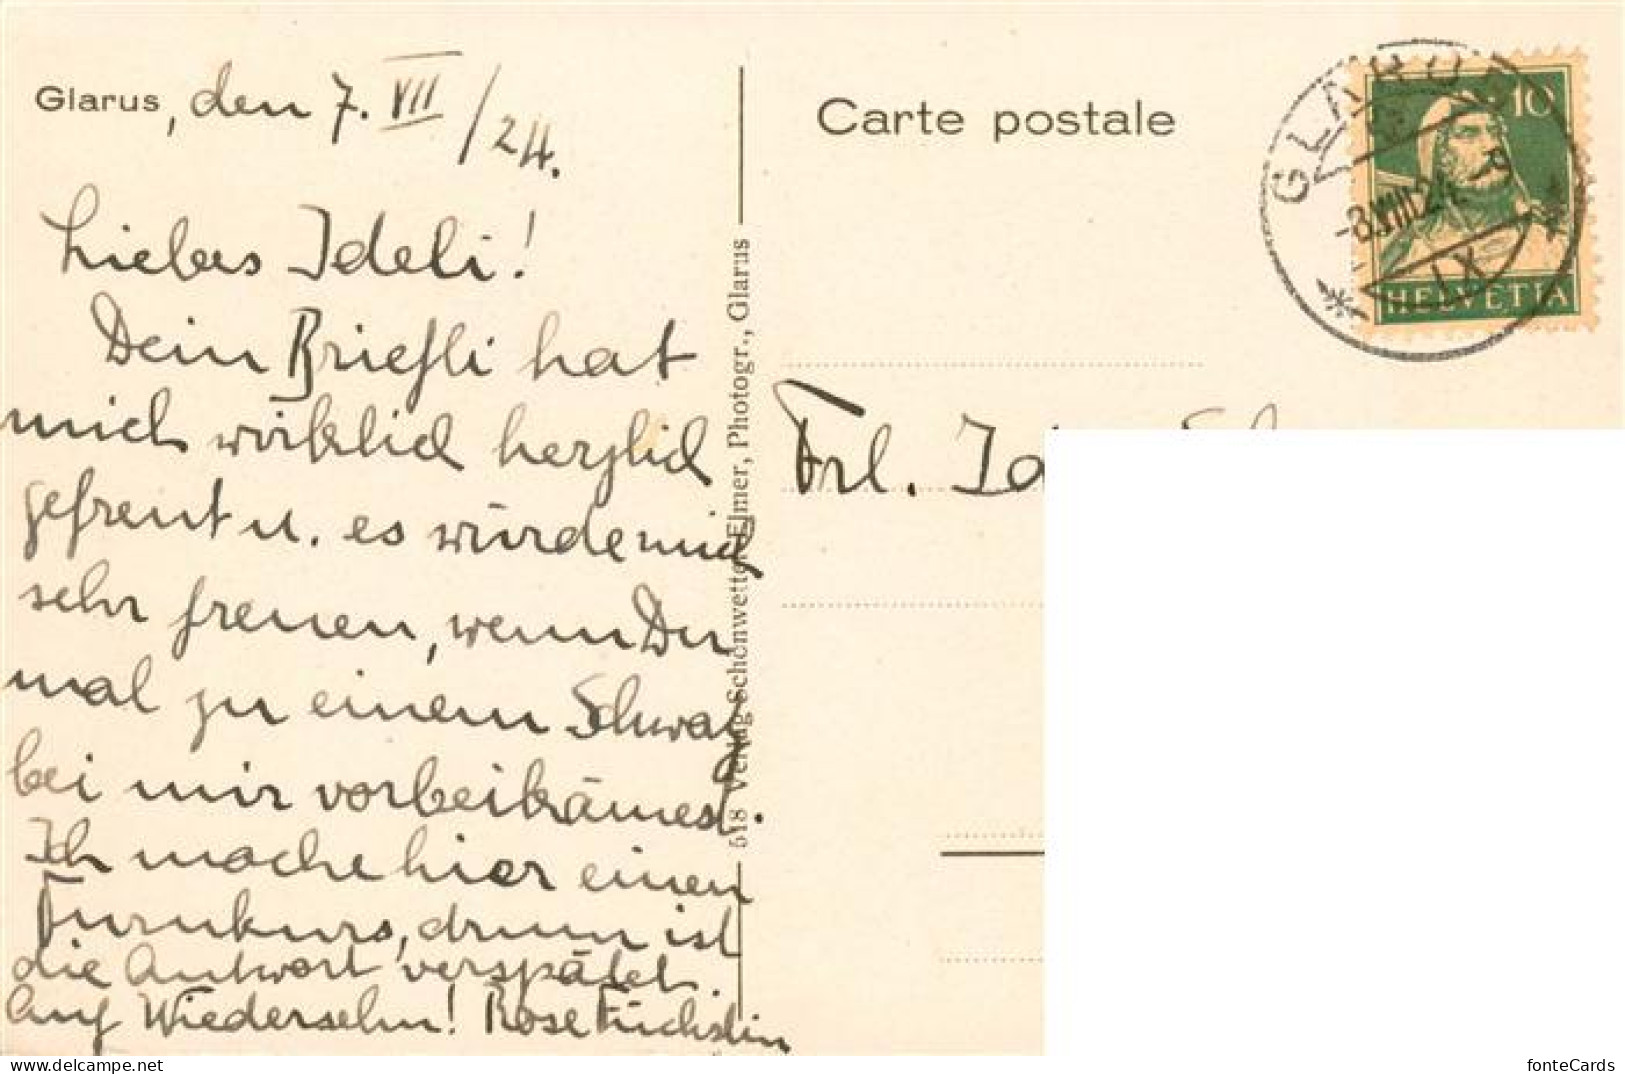 Glarus, den 7. VII/24.
Liebes Ideli!
Dein Briefli hat
mich wirklich herzlich
gefreut u. es würde mich
sehr freuen, wenn Du
mal zu einem Schwatz
bei mir vorbeikämest.
Ich mache hier einen
Turnkurs, drum ist
die Antwort verspätet.
Auf Wiedersehn! Rose Füchslin
518 Verlag Schönwetter-Elmer, Photogr., Glarus
Carte postale
GLARUS
-8.VIII.24
IX
10
HELVETIA
Frl.
fonteCards